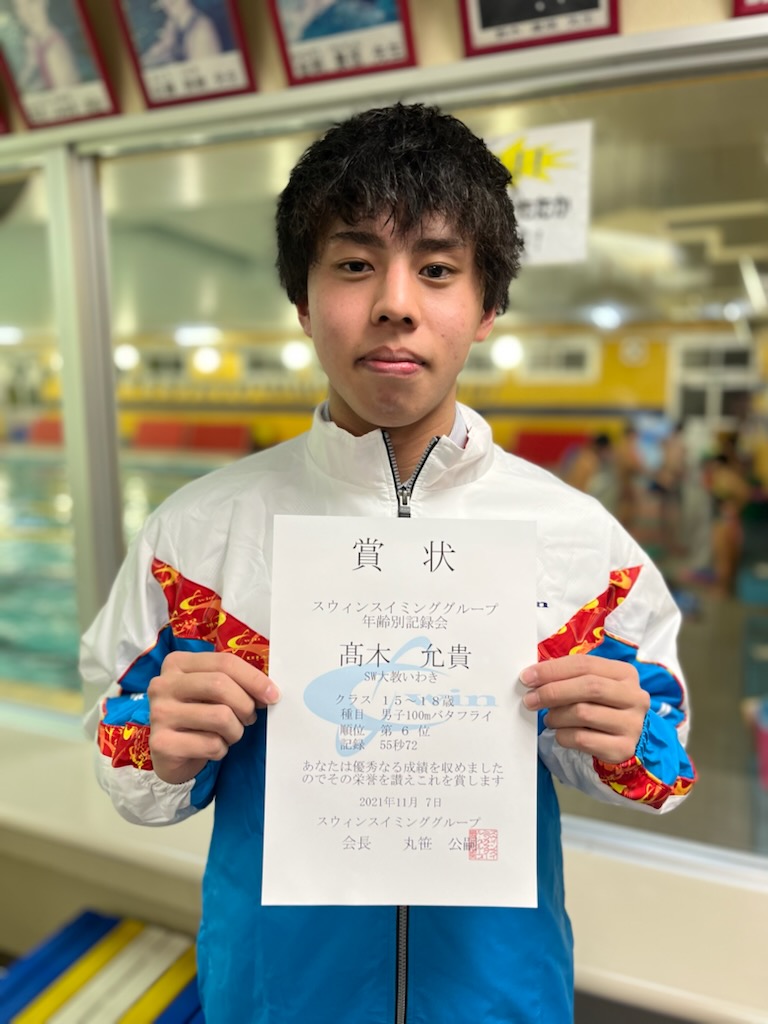 賞 状
スウィンスイミンググループ
年齢別記録会
髙木 允貴
SW大教いわき
クラス 15～18歳
種目 男子100mバタフライ
順位 第 6 位
記録 55秒72
あなたは優秀なる成績を収めました
のでその栄誉を讃えこれを賞します
2021年11月 7日
スウィンスイミンググループ
会長 丸笹 公嗣